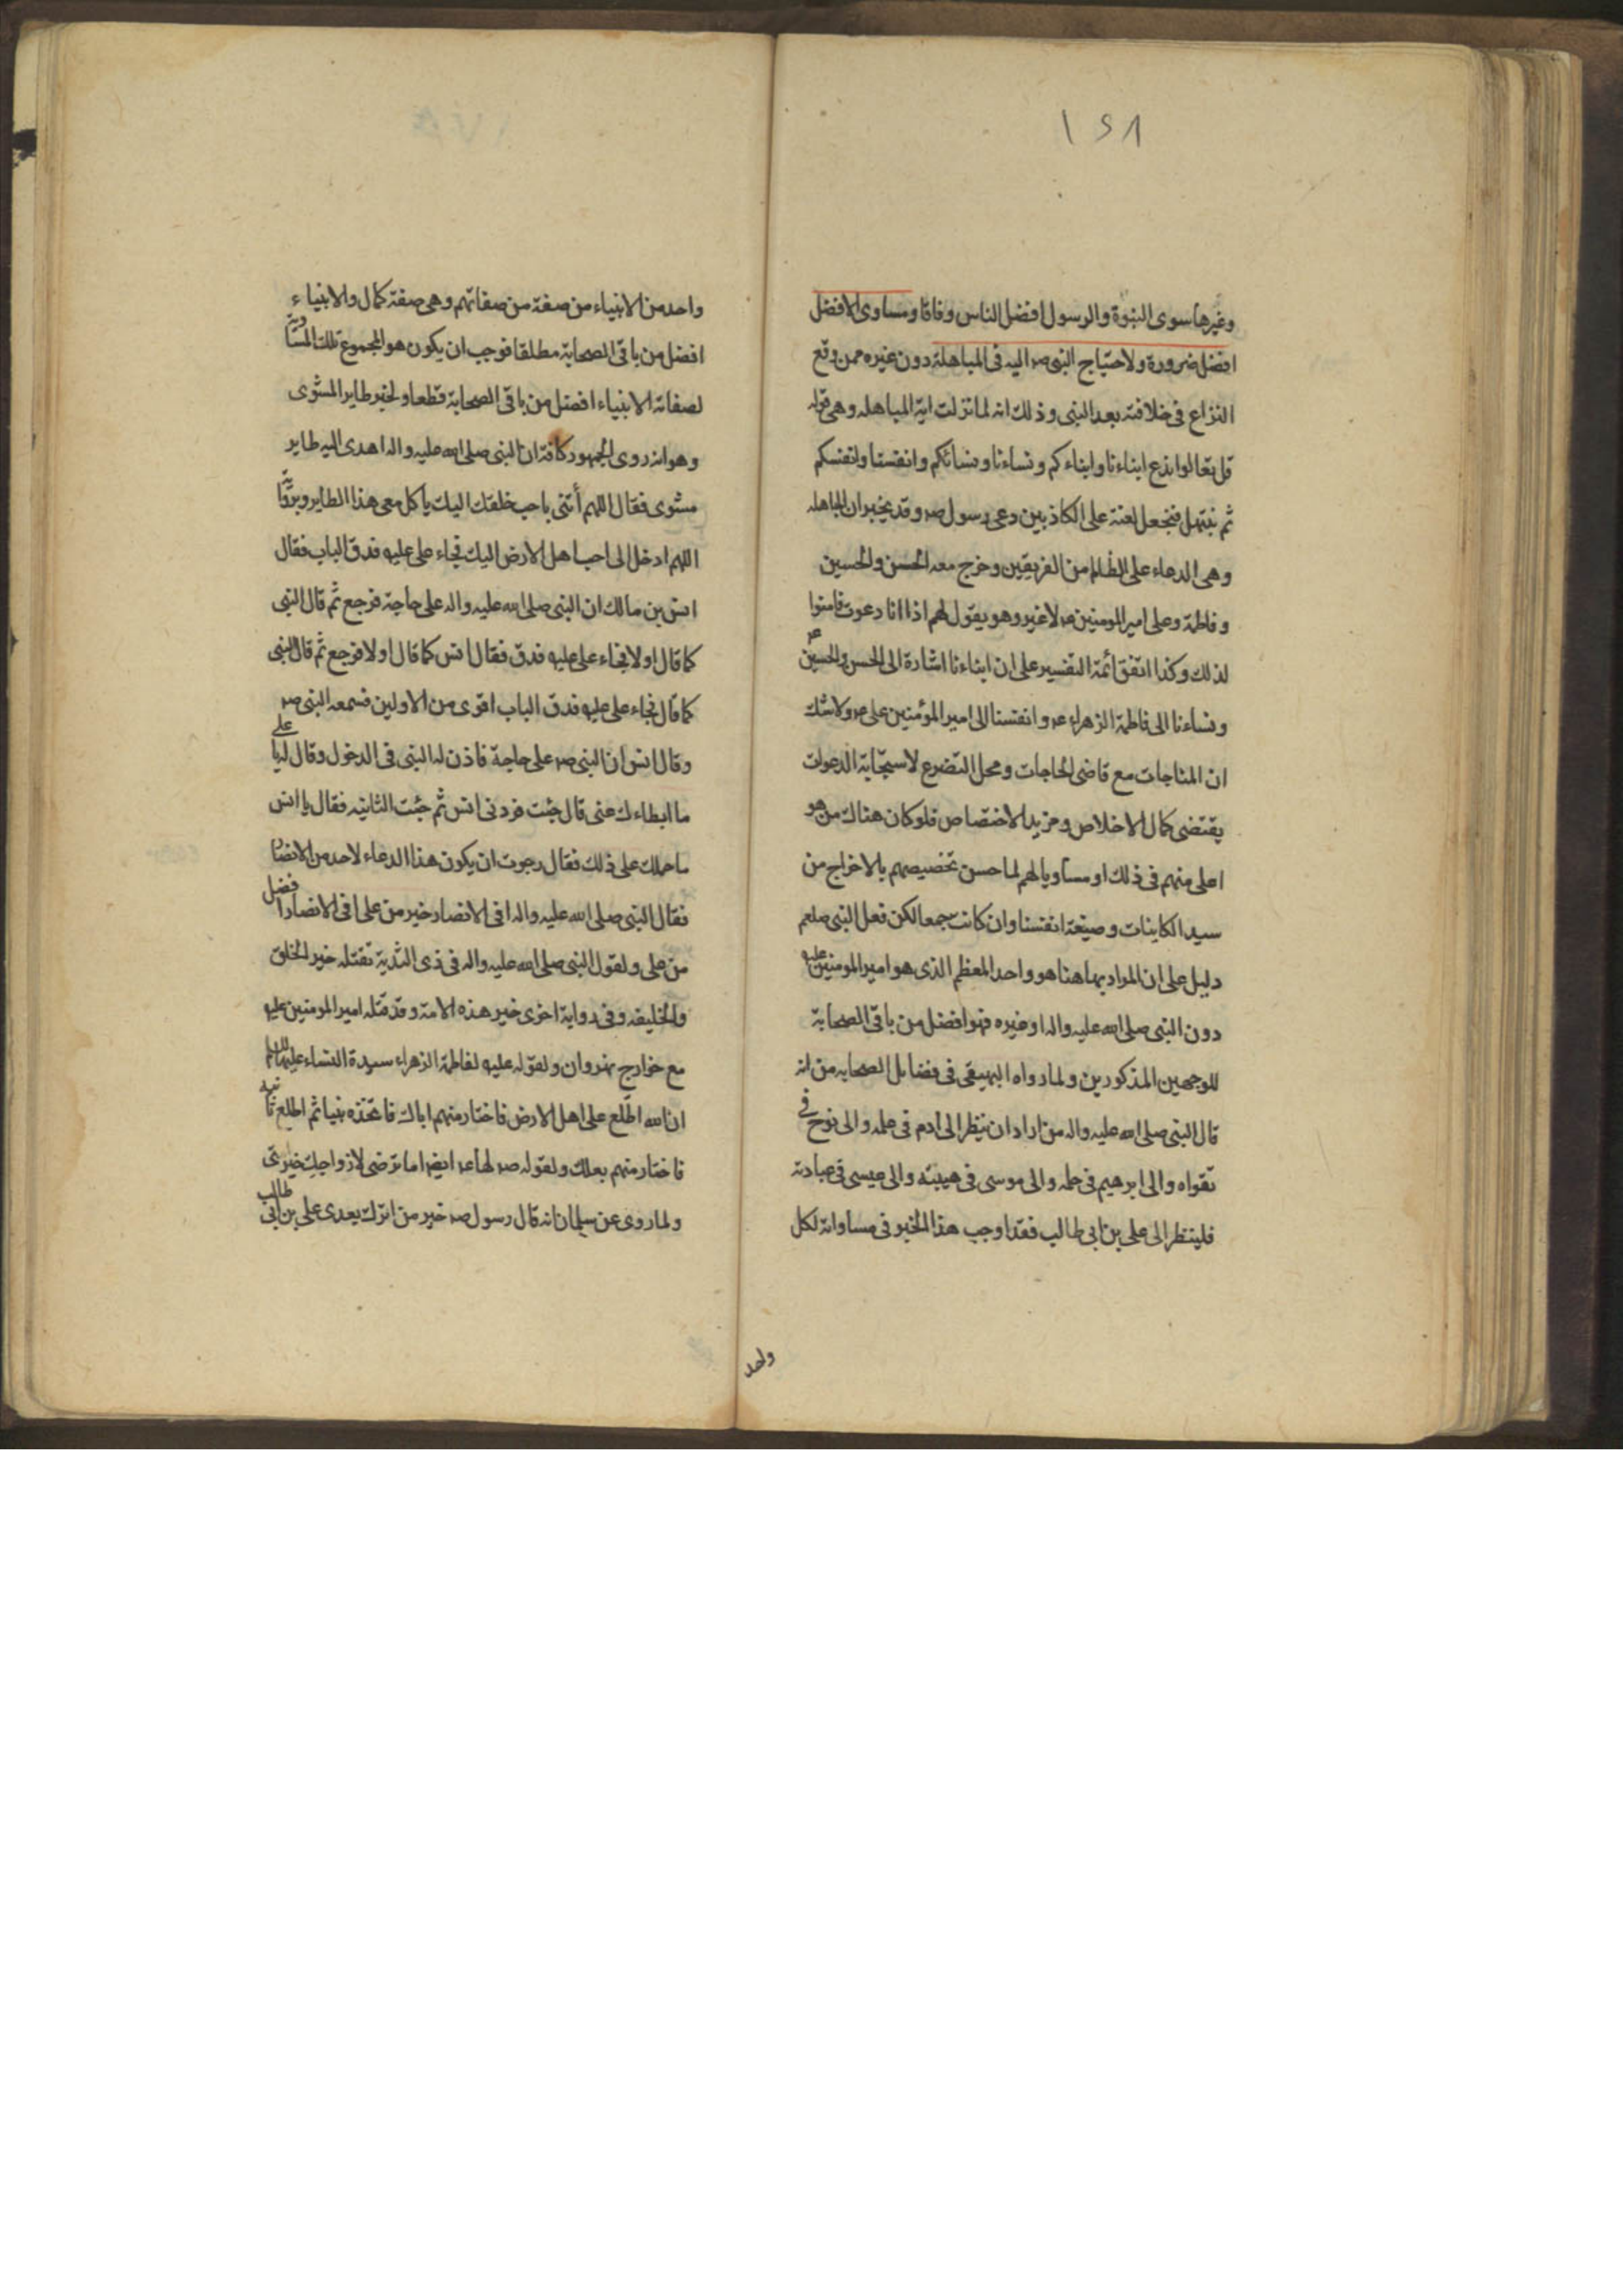 ١٤٨
وغيرها سوى النبوة والرسول افضل الناس وفاقا ومساوى الافضل
افضل ضرورة ولاحتياج النبى صم اليه فى المباهلة دون غيره ممن وقع
النزاع فى خلافته بعد النبى وذلك انه لما نزلت اية المباهله وهى قوله
قل تعالوا ندع ابناءنا وابناءكم ونساءنا ونسائكم وانفسنا وانفسكم
ثم نبتهل فنجعل لعنة على الكاذبين دعى رسول صم وقد بخبران المباهله
وهى الدعاء على الظالم من الفريقين وخرج معه الحسن والحسين
وفاطمة وعلى امير المومنين عم لا غير وهو يقول لهم اذا انا دعوت فامنوا
لذلك وكذا اتفق ائمة التفسير على ان ابناءنا اشارة الى الحسن والحسين عم
ونساءنا الى فاطمة الزهراء عم وانفسنا الى امير المؤمنين على عم ولاشك
ان المناجات مع قاضى الحاجات ومحل التضرع لاستجابة الدعوات
يقتضى كمال الاخلاص ومزيد الاختصاص فلو كان هناك من هو
اعلى منهم فى ذلك او مساويا لهم لما حسن تخصيصهم بالاخراج من
سيد الكاينات وصيغة انفسنا وان كانت جمعا لكن فعل النبى صلعم
دليل على ان المراد بها هنا هو واحد المعظم الذى هو امير المومنين عليه
دون النبى صلى الله عليه واله او غيره فهو افضل من باقى الصحابة
للوجهين المذكورين ولما رواه البيهقى فى فضايل الصحابه من انه
قال النبى صلى الله عليه واله من اراد ان ينظر الى ادم فى علمه والى نوح فى
تقواه والى ابرهيم فى حلمه والى موسى فى هيبته والى عيسى فى عبادته
فلينظر الى على بن ابى طالب فقد اوجب هذا الخبر فى مساواته لكل
واحد
واحد من الانبياء من صفة من صفاتهم وهى صفة كمال والانبياء
افضل من باقى الصحابة مطلقا فوجب ان يكون هو المجموع تلك المساوية
لصفاته الانبياء افضل من باقى الصحابة قطعا ولخبر طاير المشوى
وهو انه روى الجمهور كافة ان النبى صلى الله عليه واله اهدى اليه طاير
مشوى فقال اللهم أتنى باحب خلقك اليك ياكل معى هذا الطاير وبرواية
اللهم ادخل الى احب اهل الارض اليك فجاء على عليه فدق الباب فقال
انس بن مالك ان النبى صلى الله عليه واله على حاجة فرجع ثم قال النبى
كما قال اولا فجاء على عليه فدق فقال انس كما قال اولا فرجع ثم قال النبى
كما قال فجاء على عليه فدق الباب اقوى من الاولين فسمعه النبى صم
وقال انس ان النبى صم على حاجة فاذن له النبى فى الدخول وقال له يا على
ما ابطاءك عنى قال جئت فردنى انس ثم جئت الثانيه فقال يا انس
ما حملك على ذلك فقال رجوت ان يكون هذا الدعاء لاحد من الانصار
فقال النبى صلى الله عليه واله افى الانصار خير من على افى الانصار افضل
من على ولقول النبى صلى الله عليه واله فى ذى الثدية تقتله خير الخلق
والخليفه وفى رواية اخرى خير هذه الامة وقد قتله امير المومنين عليه
مع خوارج نهروان ولقوله عليه لفاطمة الزهراء سيدة النساء عليها السلم
ان الله اطّلع على اهل الارض فاختار منهم اباك فاتخذه نبيا ثم اطلع ثانيه
فاختار منهم بعلك ولقوله صم لها عم ايضا اما ترضى لازواجك خير
ولما روى عن سلمان انه قال رسول صم خير من اترك بعدى على بن ابى طالب